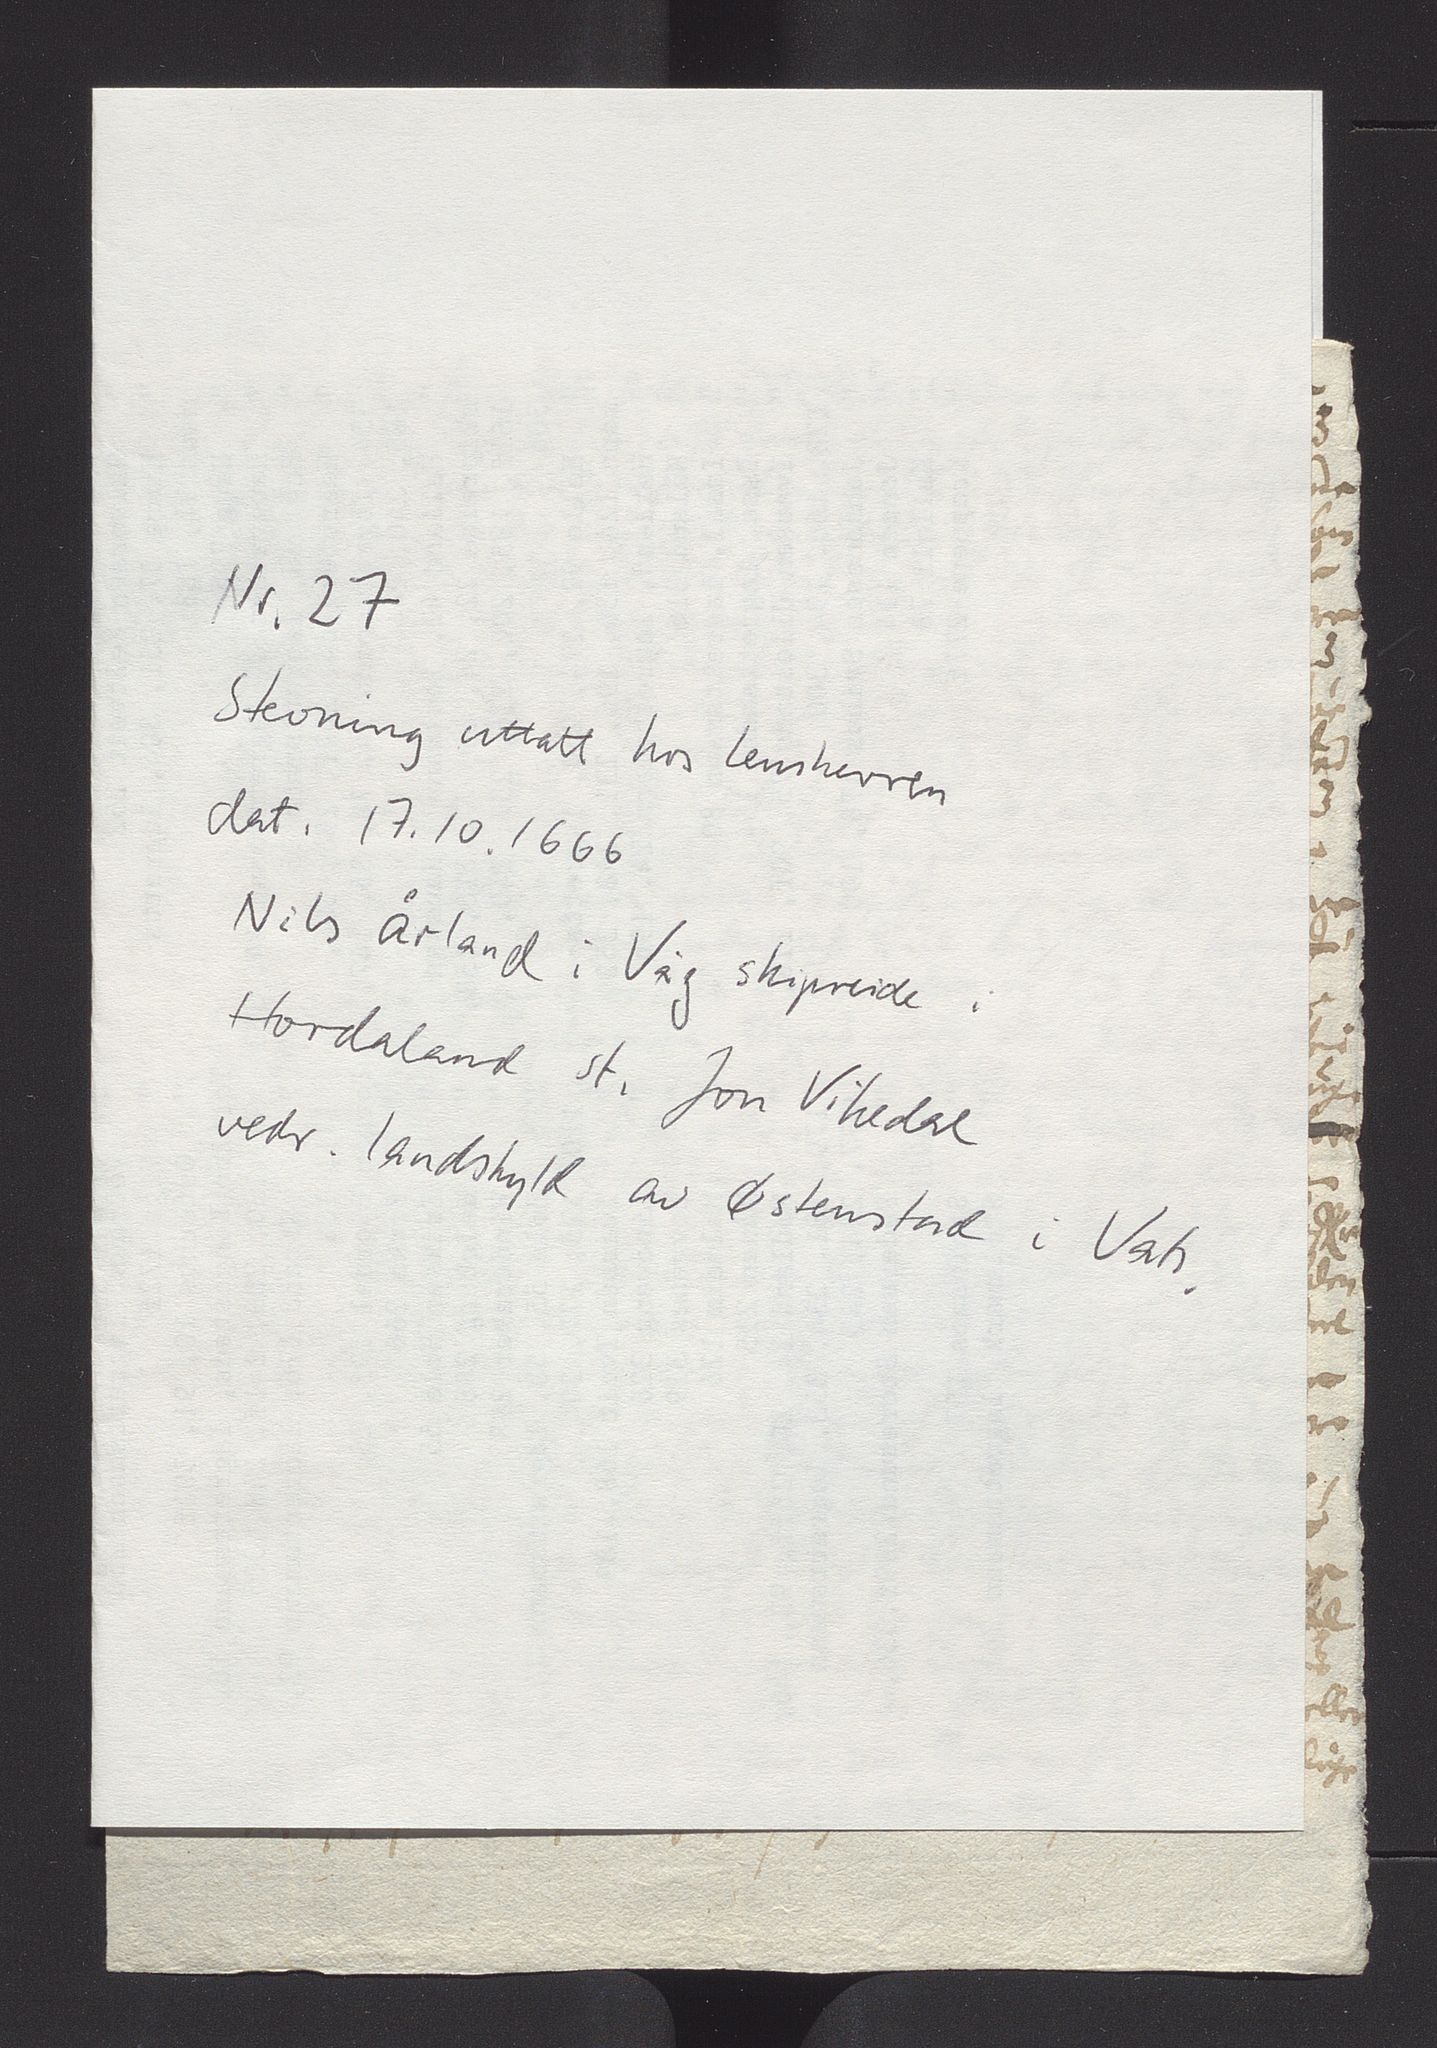 Nr. 27
Stevning uttatt hos lensherren
dat. 17.10.1666
Nils Årland i Våg skipreide i
Hordaland st. Jon Vikedal
vedr. landskyld av Østenstad i Vats.